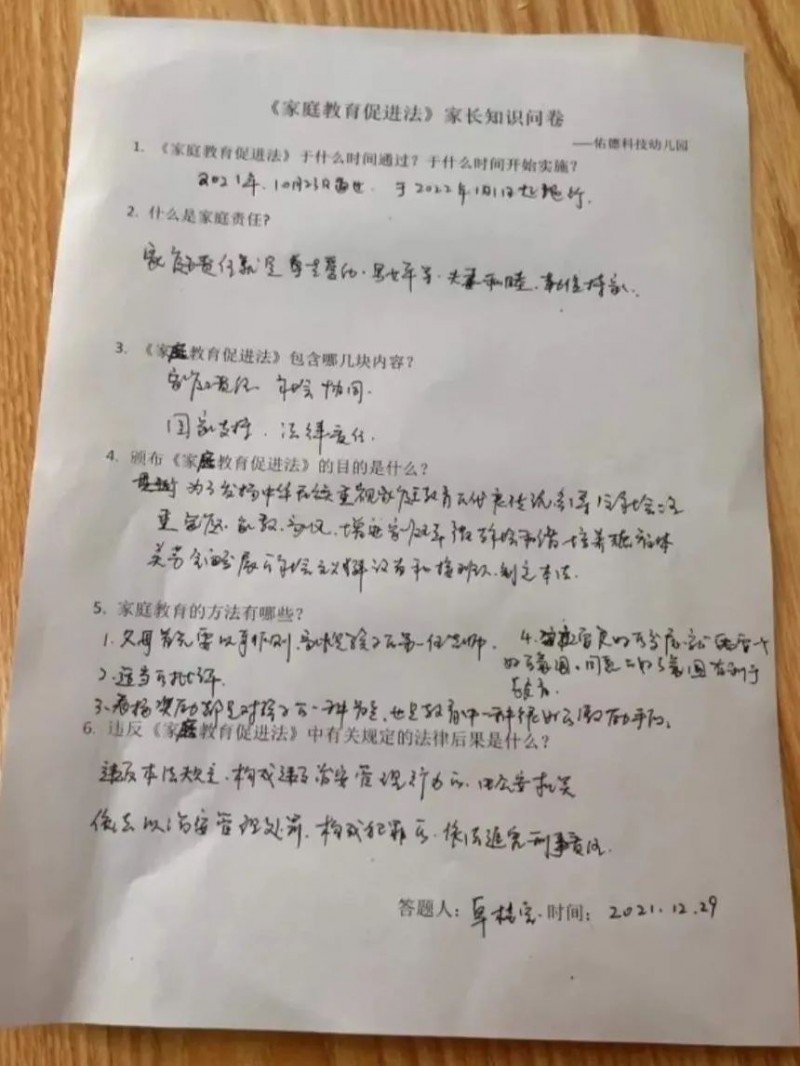 《家庭教育促进法》家长知识问卷
——佑德科技幼儿园
1. 《家庭教育促进法》于什么时间通过？于什么时间开始实施？
2021年.10月23日 于2022年1月1日起施行.
2. 什么是家庭责任?
家庭责任就是 夫妻和睦.勤俭持家.
3. 《家庭教育促进法》包含哪几块内容？
家庭责任 社会协同.
国家支持.法律责任.
4. 颁布《家庭教育促进法》的目的是什么？
为了发扬中华民族重视家庭教育的优良传统,引导全社会注
重家庭.家教.家风,增进家庭幸福与社会和谐.培养德智体
美劳全面发展的社会主义建设者和接班人.制定本法.
5. 家庭教育的方法有哪些？
1.父母首先要以身作则 家长是孩子的第一任老师. 4.
2.适当的批评. 的氛围. 氛围有利于
3.表扬奖励都是对孩子的一种 也是教育中一种 的 手段。
6. 违反《家庭教育促进法》中有关规定的法律后果是什么？
违反本法规定.构成违反治安管理行为的.由公安机关
依法以治安管理处罚.构成犯罪的.依法追究刑事责任.
答题人： 时间： 2021.12.29